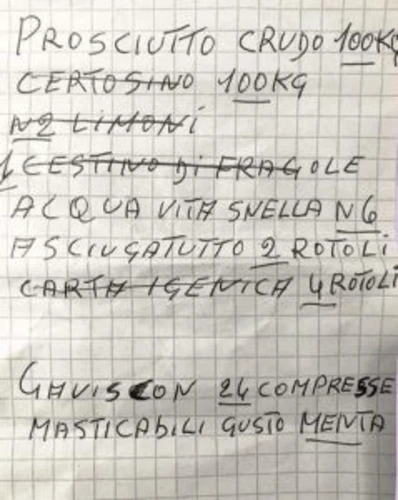 PROSCIUTTO CRUDO 100KG
CERTOSINO 100KG
N2 LIMONI
1 CESTINO DI FRAGOLE
ACQUA VITA SNELLA N6
ASCIUGATUTTO 2 ROTOLI
CARTA IGENICA 4 ROTOLI
GAVISCON 24 COMPRESSE
MASTICABILI GUSTO MENTA